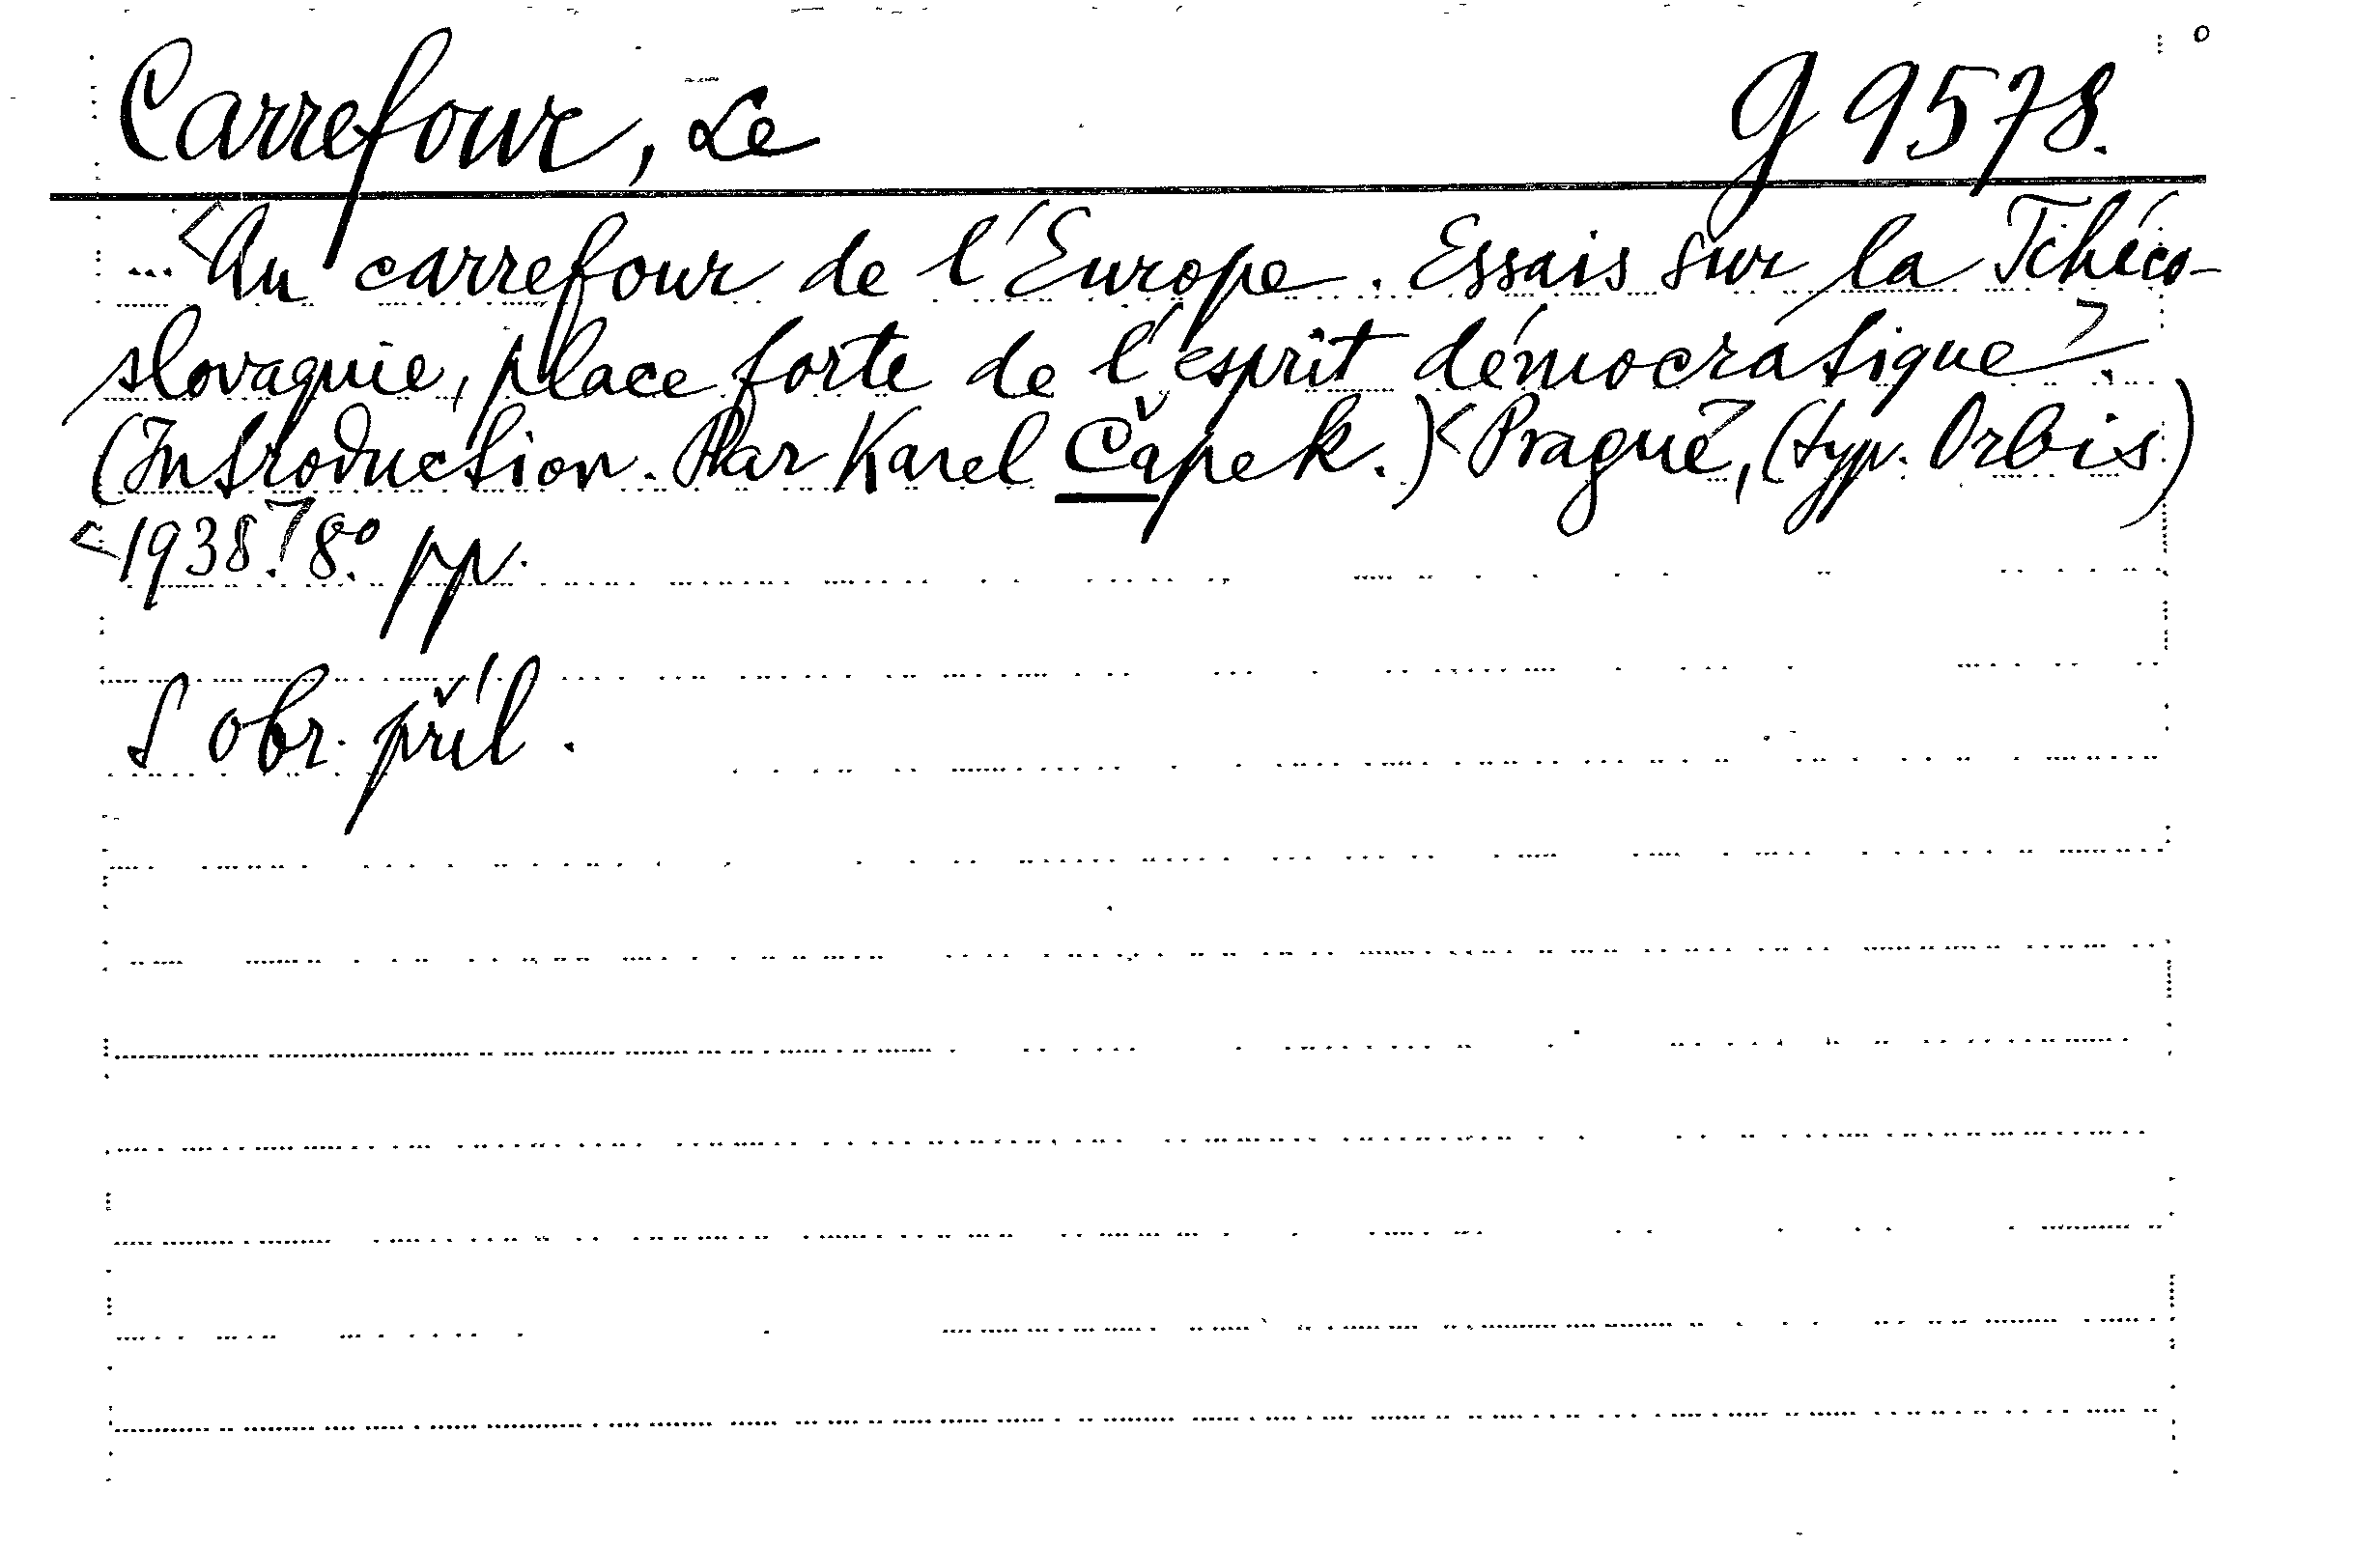 Carrefour, Le g 9578.
... <Au carrefour de l'Europe. Essais sur la Tchéco-
slovaquie, place forte de l'esprit démocratique>.
(Introduction. Par Karel Čapek.) <Prague>, (typ. Orbis)
<1938.> 8.° pp.
S obr. příl.